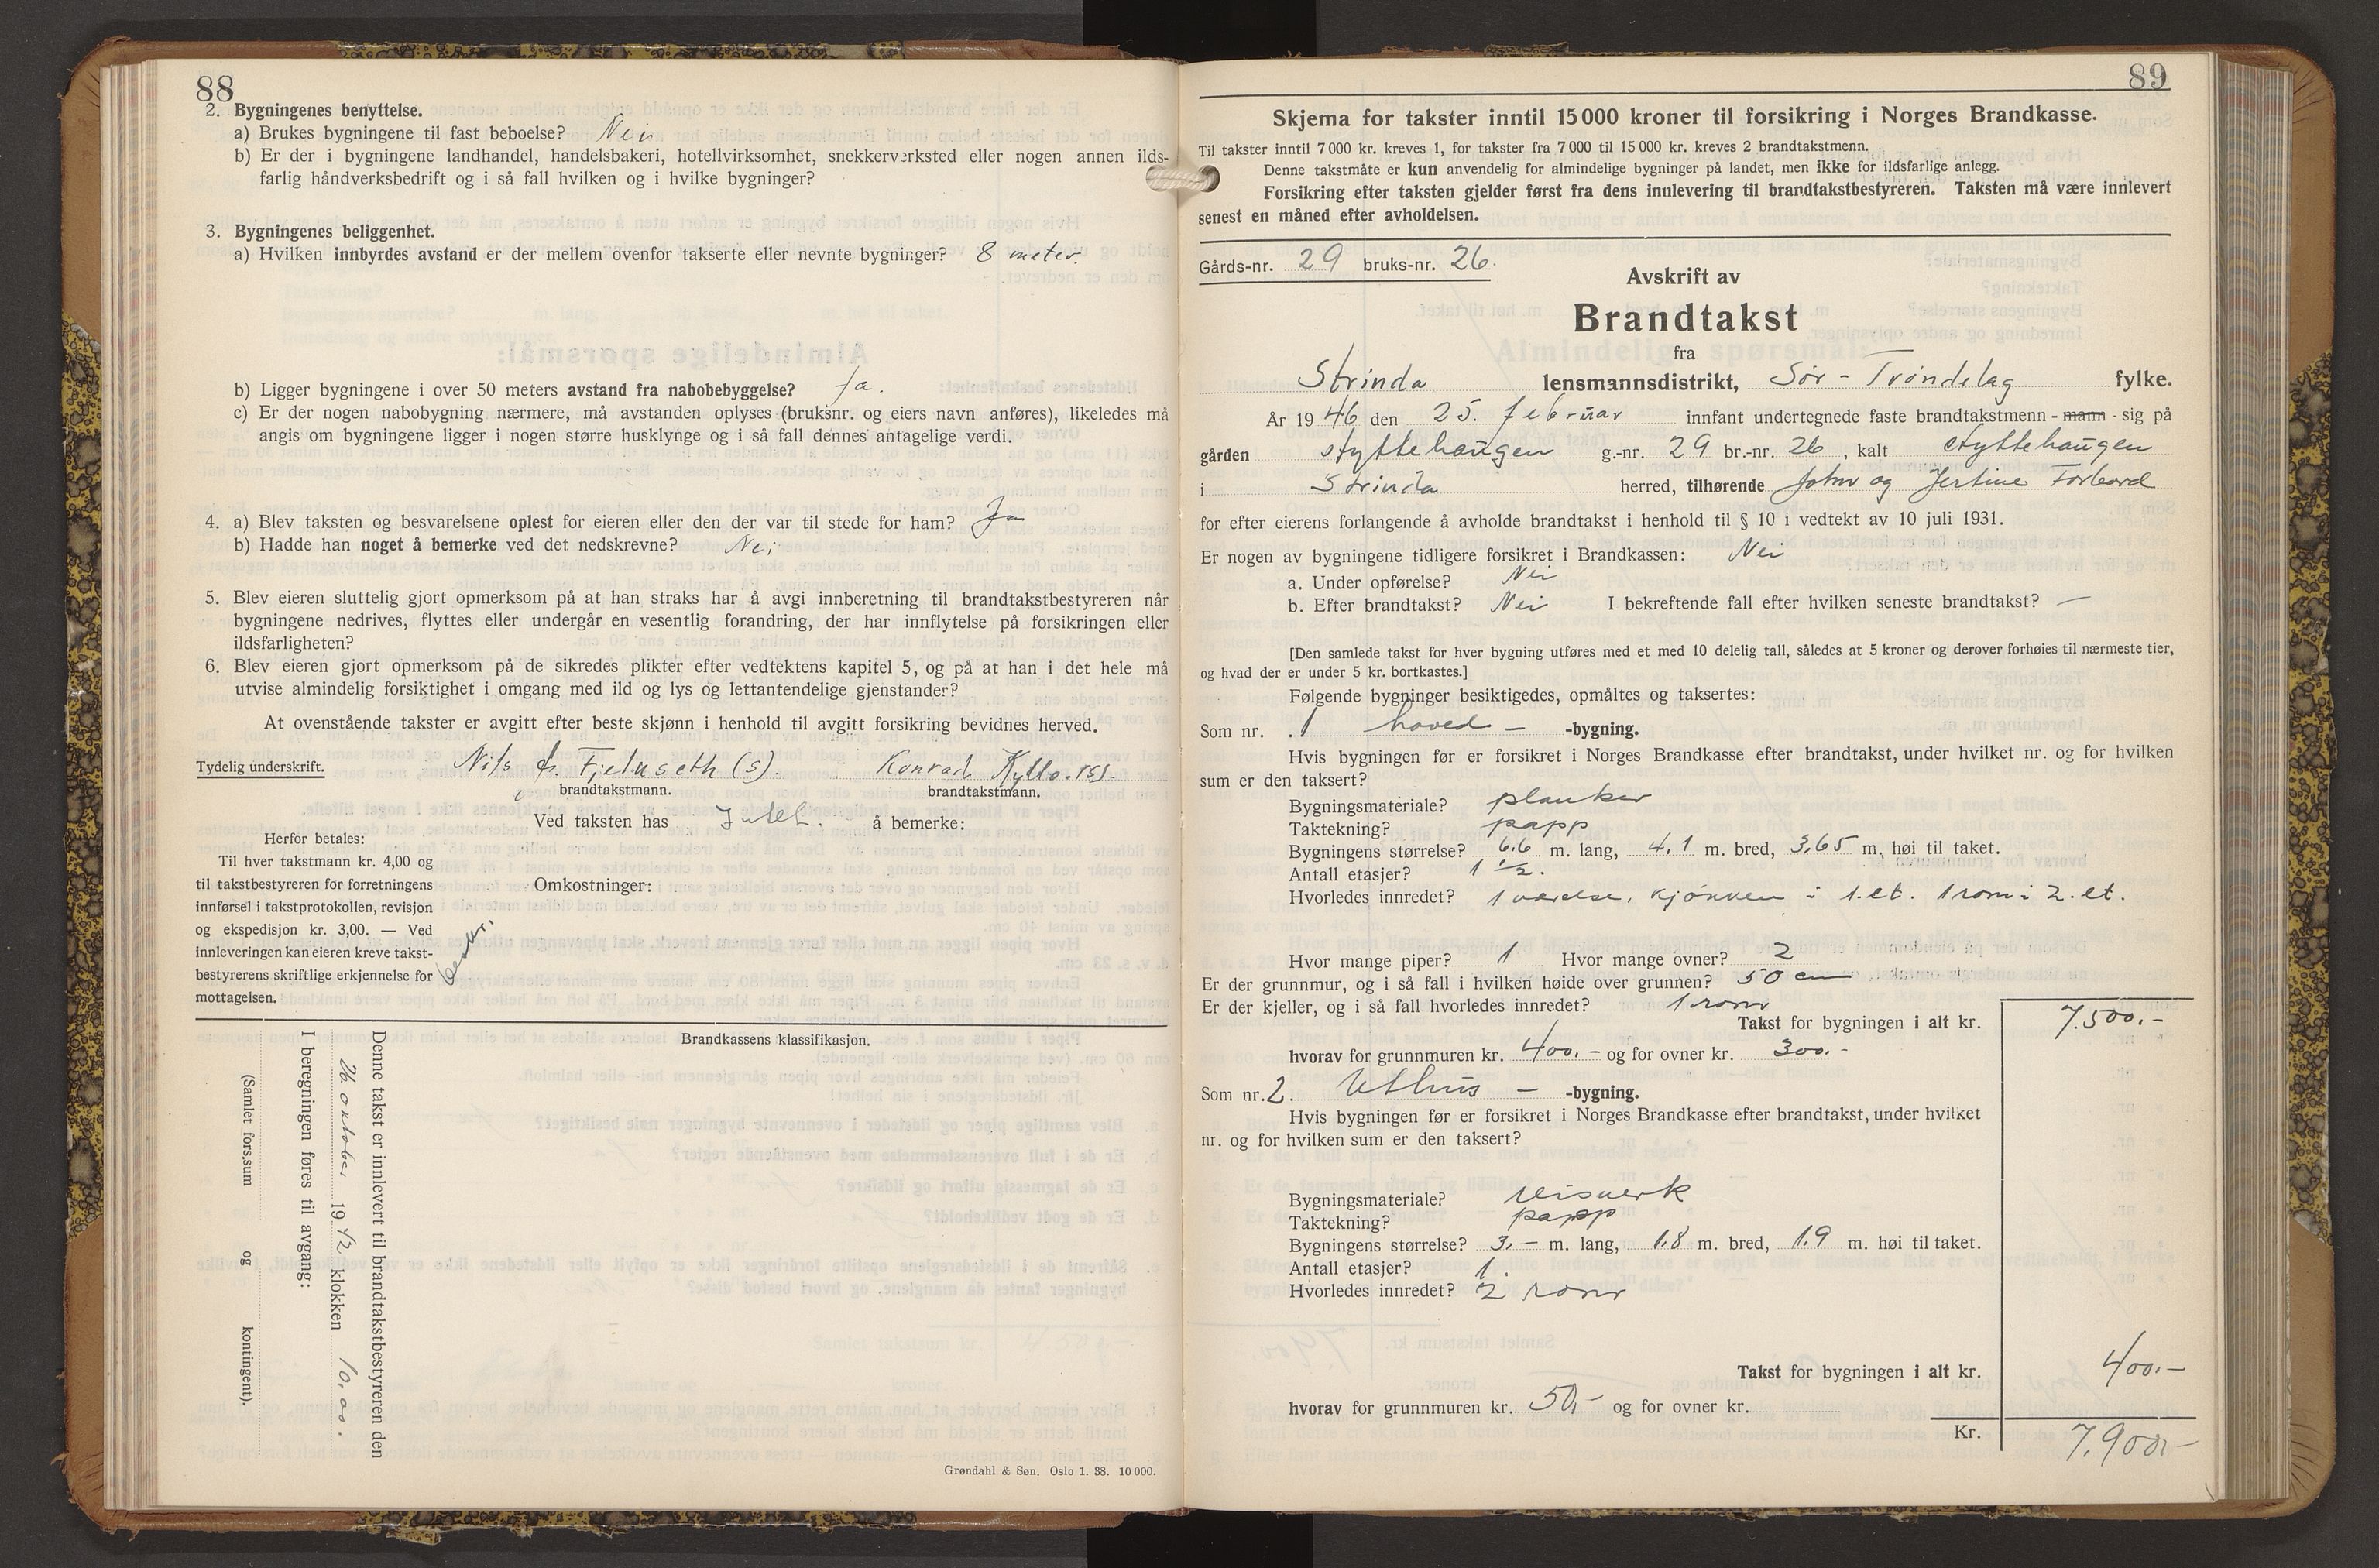 88
2. Bygningenes benyttelse.
a) Brukes bygningene til fast beboelse? Nei
b) Er der i bygningene landhandel, handelsbakeri, hotellvirksomhet, snekkerverksted eller nogen annen ilds-
farlig håndverksbedrift og i så fall hvilken og i hvilke bygninger?
3. Bygningenes beliggenhet.
a) Hvilken innbyrdes avstand er der mellem ovenfor takserte eller nevnte bygninger? 8 meter.
b) Ligger bygningene i over 50 meters avstand fra nabobebyggelse? Ja.
c) Er der nogen nabobygning nærmere, må avstanden oplyses (bruksnr. og eiers navn anføres), likeledes må
angis om bygningene ligger i nogen større husklynge og i så fall dennes antagelige verdi.
4. a) Blev taksten og besvarelsene oplest for eieren eller den der var til stede for ham? Ja
b) Hadde han noget å bemerke ved det nedskrevne? Nei
5. Blev eieren sluttelig gjort opmerksom på at han straks har å avgi innberetning til brandtakstbestyreren når
bygningene nedrives, flyttes eller undergår en vesentlig forandring, der har innflytelse på forsikringen eller
ildsfarligheten?
6. Blev eieren gjort opmerksom på de sikredes plikter efter vedtektens kapitel 5, og på at han i det hele må
utvise almindelig forsiktighet i omgang med ild og lys og lettantendelige gjenstander?
At ovenstående takster er avgitt efter beste skjønn i henhold til avgitt forsikring bevidnes herved.
Tydelig underskrift. Nils Fjeluseth (s). Konrad Kyllo. (s).
brandtakstmann. brandtakstmann.
Ved taksten has Intet. å bemerke:
Herfor betales:
Til hver takstmann kr. 4,00 og
til takstbestyreren for forretningens
innførsel i takstprotokollen, revisjon
og ekspedisjon kr. 3,00. — Ved
innleveringen kan eieren kreve takst-
bestyrerens skriftlige erkjennelse for
mottagelsen.
Omkostninger:
Brandkassens klassifikasjon.
Denne takst er innlevert til brandtakstbestyreren den
26 oktober 1942 klokken 10,00.
I beregningen føres til avgang:
(Samlet fors.sum og kontingent).
Grøndahl & Søn. Oslo 1. 38. 10 000.
89
Skjema for takster inntil 15 000 kroner til forsikring i Norges Brandkasse.
Til takster inntil 7 000 kr. kreves 1, for takster fra 7 000 til 15 000 kr. kreves 2 brandtakstmenn.
Denne takstmåte er kun anvendelig for almindelige bygninger på landet, men ikke for ildsfarlige anlegg.
Forsikring efter taksten gjelder først fra dens innlevering til brandtakstbestyreren. Taksten må være innlevert
senest en måned efter avholdelsen.
Gårds-nr. 29 bruks-nr. 26.
Avskrift av
Brandtakst
fra
Strinda lensmannsdistrikt, Sør-Trøndelag fylke.
År 1946 den 25. februar innfant undertegnede faste brandtakstmenn - mann - sig på
gården Styttehaugen g.-nr. 29 br.-nr. 26, kalt Styttehaugen
i Strinda herred, tilhørende John og Jertine Forbord
for efter eierens forlangende å avholde brandtakst i henhold til § 10 i vedtekt av 10 juli 1931.
Er nogen av bygningene tidligere forsikret i Brandkassen: Nei
a. Under opførelse? Nei
b. Efter brandtakst? Nei I bekreftende fall efter hvilken seneste brandtakst? —
[Den samlede takst for hver bygning utføres med et med 10 delelig tall, således at 5 kroner og derover forhøies til nærmeste tier,
og hvad der er under 5 kr. bortkastes.]
Følgende bygninger besiktigedes, opmåltes og taksertes:
Som nr. 1 hoved — -bygning.
Hvis bygningen før er forsikret i Norges Brandkasse efter brandtakst, under hvilket nr. og for hvilken
sum er den taksert?
Bygningsmateriale? planker
Taktekning? papp
Bygningens størrelse? 6.6 m. lang, 4.1 m. bred, 3,65 m. høi til taket.
Antall etasjer? 1 ½.
Hvorledes innredet? 1 værelse, kjøkken i 1. et. 1 rom i 2. et.
Hvor mange piper? 1 Hvor mange ovner? 2
Er der grunnmur, og i så fall i hvilken høide over grunnen? 50 cm
Er der kjeller, og i så fall hvorledes innredet? 1 rom
Takst for bygningen i alt kr. 7.500.-
hvorav for grunnmuren kr. 400.- og for ovner kr. 300.-
Som nr. 2. Uthus — -bygning.
Hvis bygningen før er forsikret i Norges Brandkasse efter brandtakst, under hvilket
nr. og for hvilken sum er den taksert?
Bygningsmateriale? reisverk
Taktekning? papp
Bygningens størrelse? 3.- m. lang, 1.8 m. bred, 1.9 m. høi til taket.
Antall etasjer? 1.
Hvorledes innredet? 2 rom
Takst for bygningen i alt kr. 400.-
hvorav for grunnmuren kr. 50,- og for ovner kr.
Kr. 7.900.-